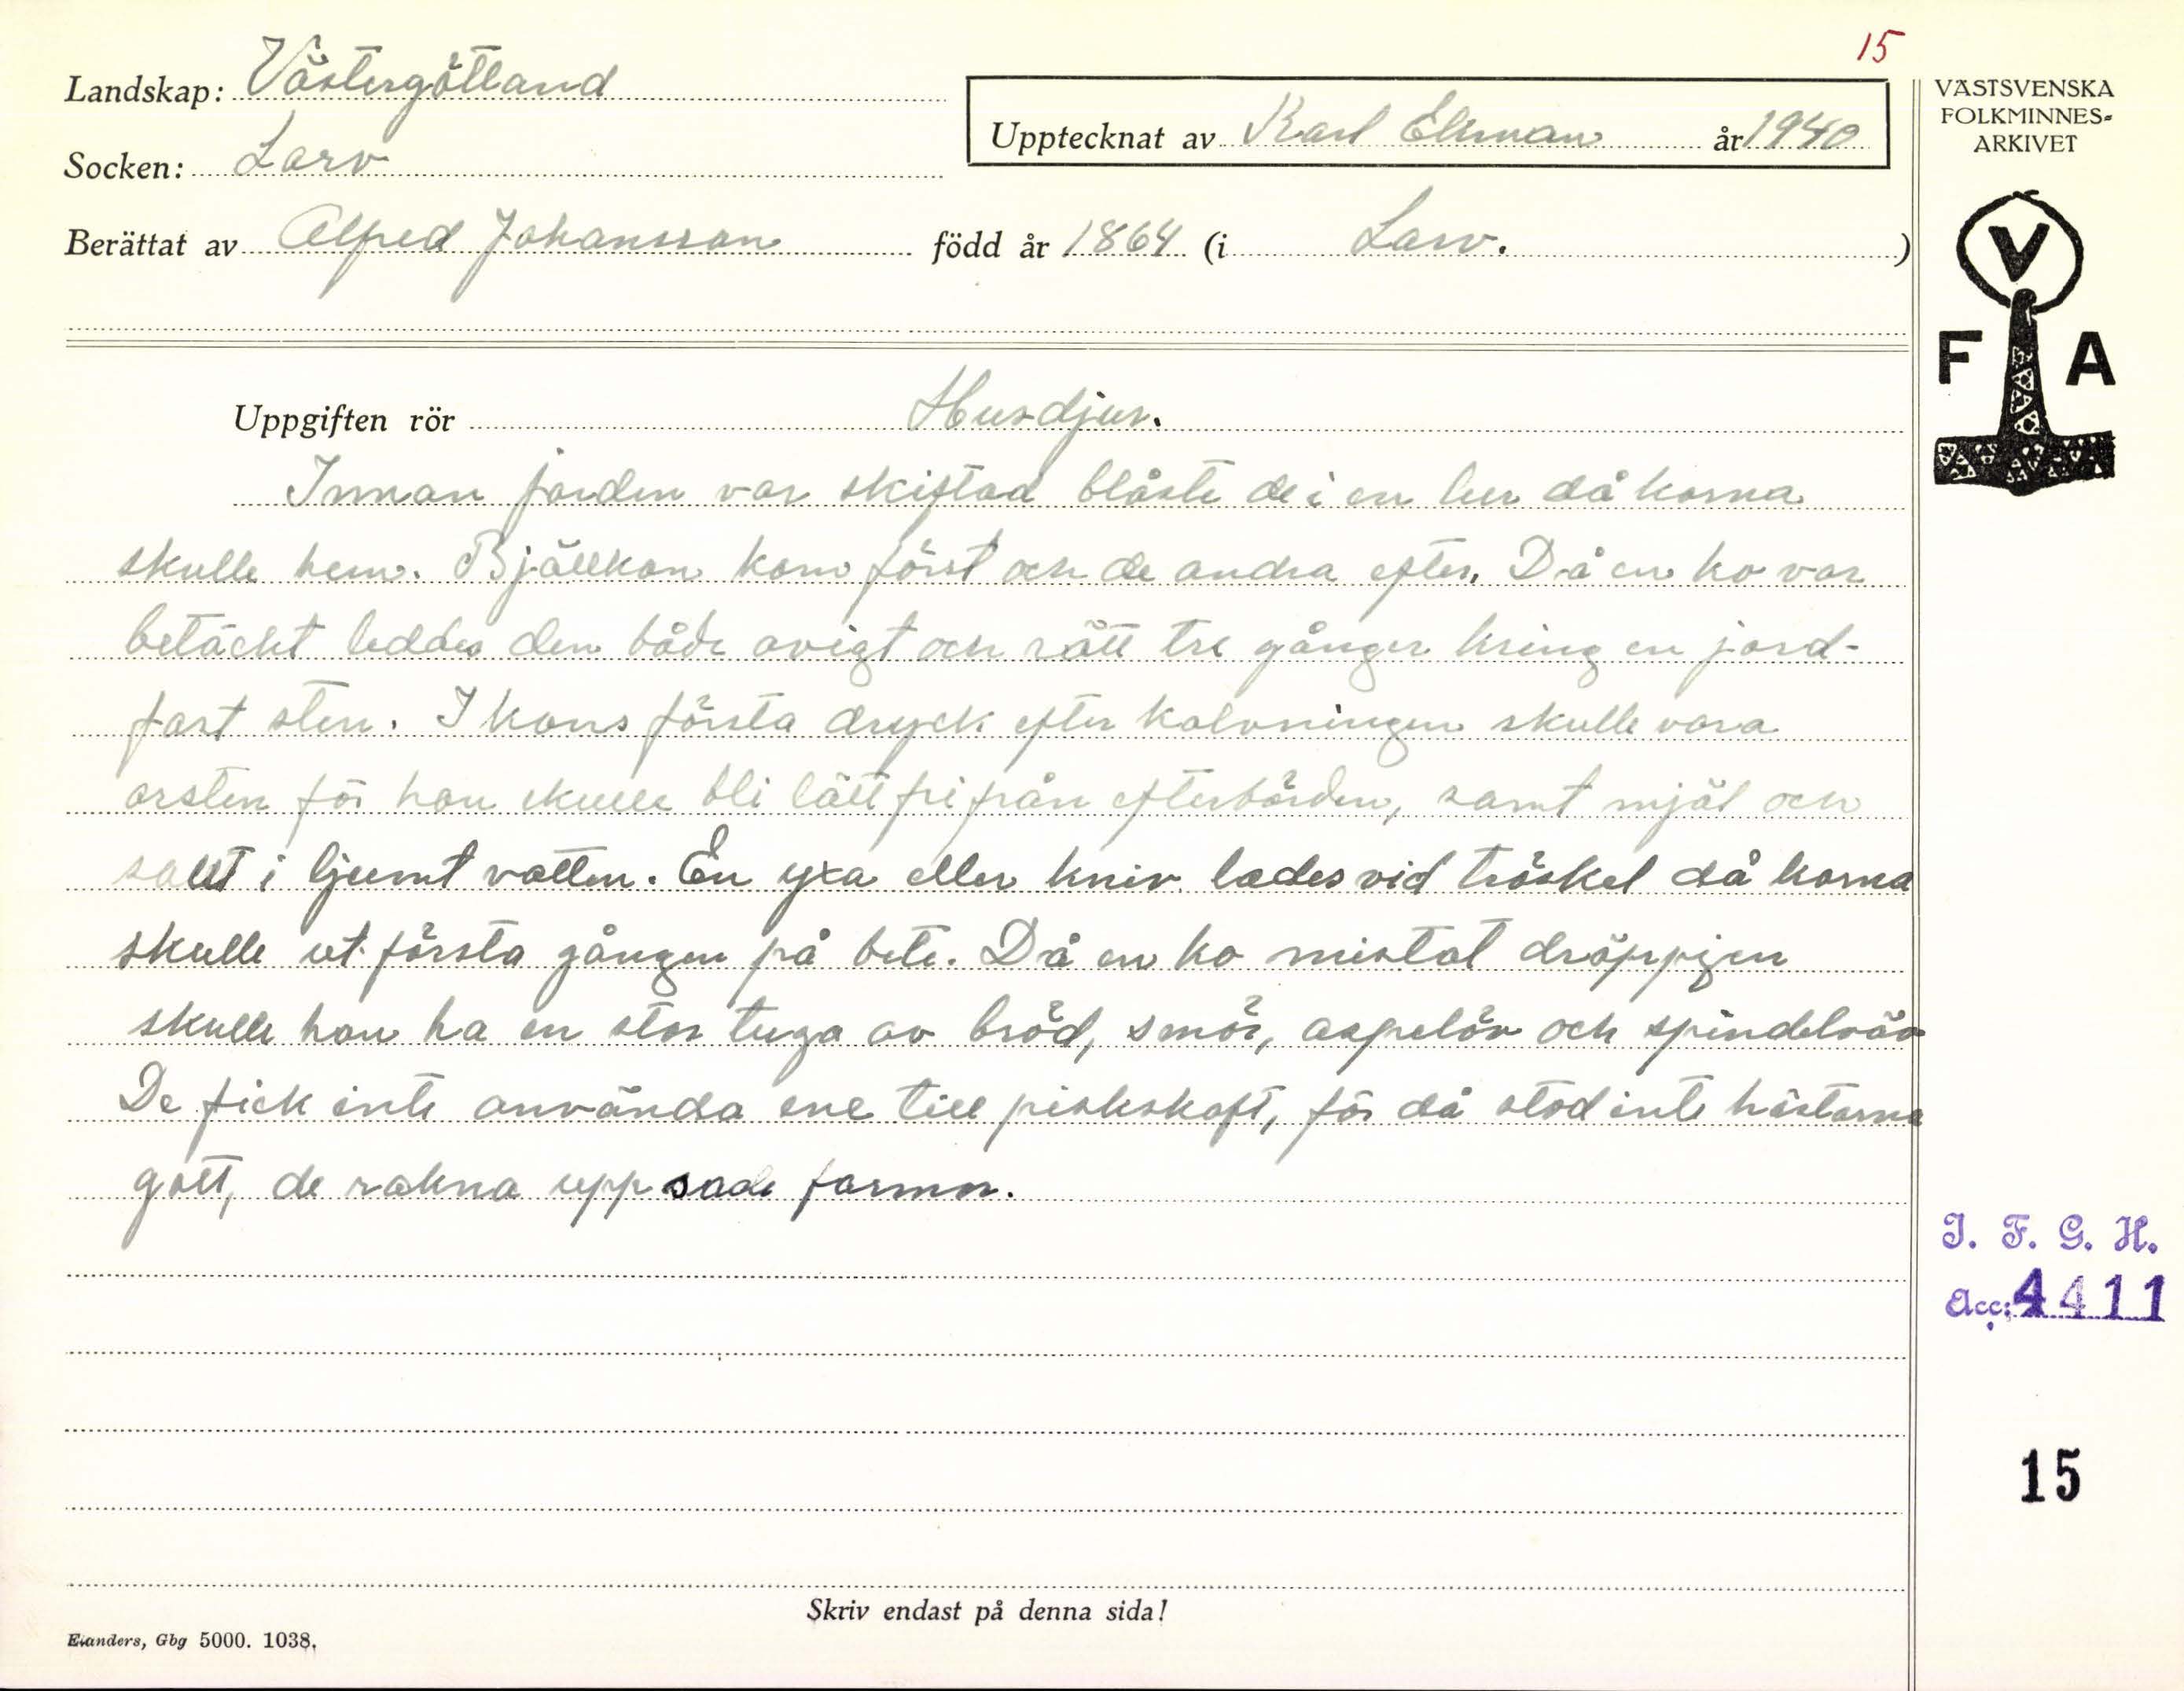 15
Landskap: Västergötland
Socken: Larv
Upptecknat av Karl Ekman år 1940
Berättat av Alfred Johansson född år 1864 (i Larv. )
VÄSTSVENSKA
FOLKMINNES-
ARKIVET
V
F A
Uppgiften rör Husdjur.
Innan jorden var skiftad blåste de i en lur då korna
skulle hem. Bjällkon kom först och de andra efter. Då en ko var
betäckt leddes den både avigt och rätt tre gånger kring en jord-
fast sten. I kons första dryck efter kalvningen skulle vara
orsten för hon skulle bli lätt fri från efterbörden, samt mjöl och
salt i ljumt vatten. En yxa eller kniv lades vid tröskel då korna
skulle ut första gången på bete. Då en ko mistat dröppjen
skulle hon ha en stor tuga av bröd, smör, aspelöv och spindelväv
De fick inte använda ene till piskskaft, för då stod inte hästarna
gott, de rakna upp sade farmor.
I. F. G. H.
Acc: 4411
15
Skriv endast på denna sida!
Elanders, Gbg 5000. 1038.